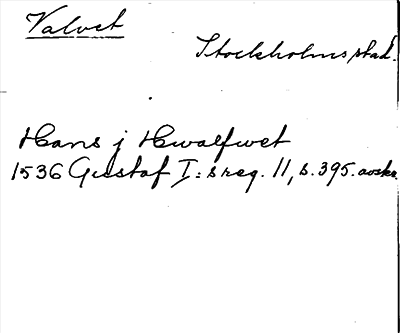 Valvet
Stockholms stad.
Hans j Hwalfwet
1536 Gustaf I:s reg. 11, s. 395. avskr.